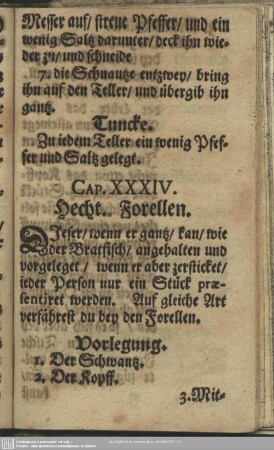 Messer auf/ streue Pfeffer/ und ein
wenig Saltz darunter/ deck ihn wie-
der zu/ und schneide
7. die Schnautze entzwey/ bring
ihn auf den Teller/ und übergib ihn
gantz.
Tuncke.
Zu iedem Teller ein wenig Pfef-
fer und Saltz gelegt.
CAP. XXXIV.
Hecht. Forellen.
DIeser/ wenn er gantz/ kan/ wie
der Bratfisch/ angehalten und
vorgeleget/ wenn er aber zersticket/
ieder Person nur ein Stück præ-
sentiret werden. Auf gleiche Art
verfährest du bey den Forellen.
Vorlegung.
1. Der Schwantz.
2. Der Kopff.
3. Mit-